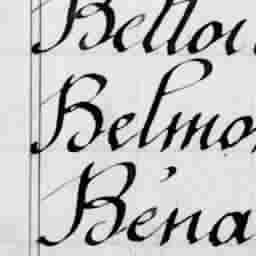 Belloi
Belmo
Béna